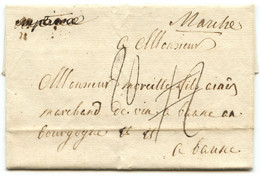 Marche
A Monsieur
Monsieur morveille fils ainé
marchand de vin a baune en
bourgogne
a baune